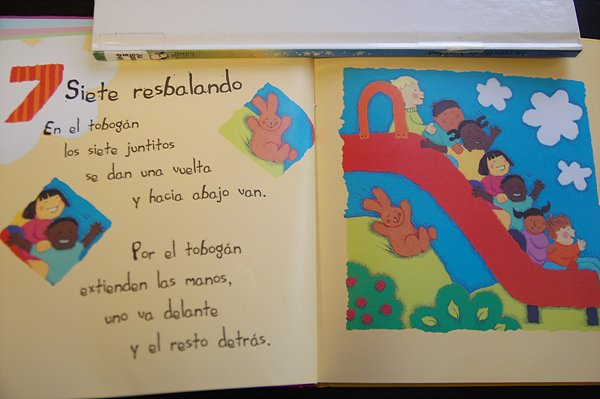 7
Siete resbalando
En el tobogán
los siete juntitos
se dan una vuelta
y hacia abajo van.
Por el tobogán
extienden las manos,
uno va delante
y el resto detrás.